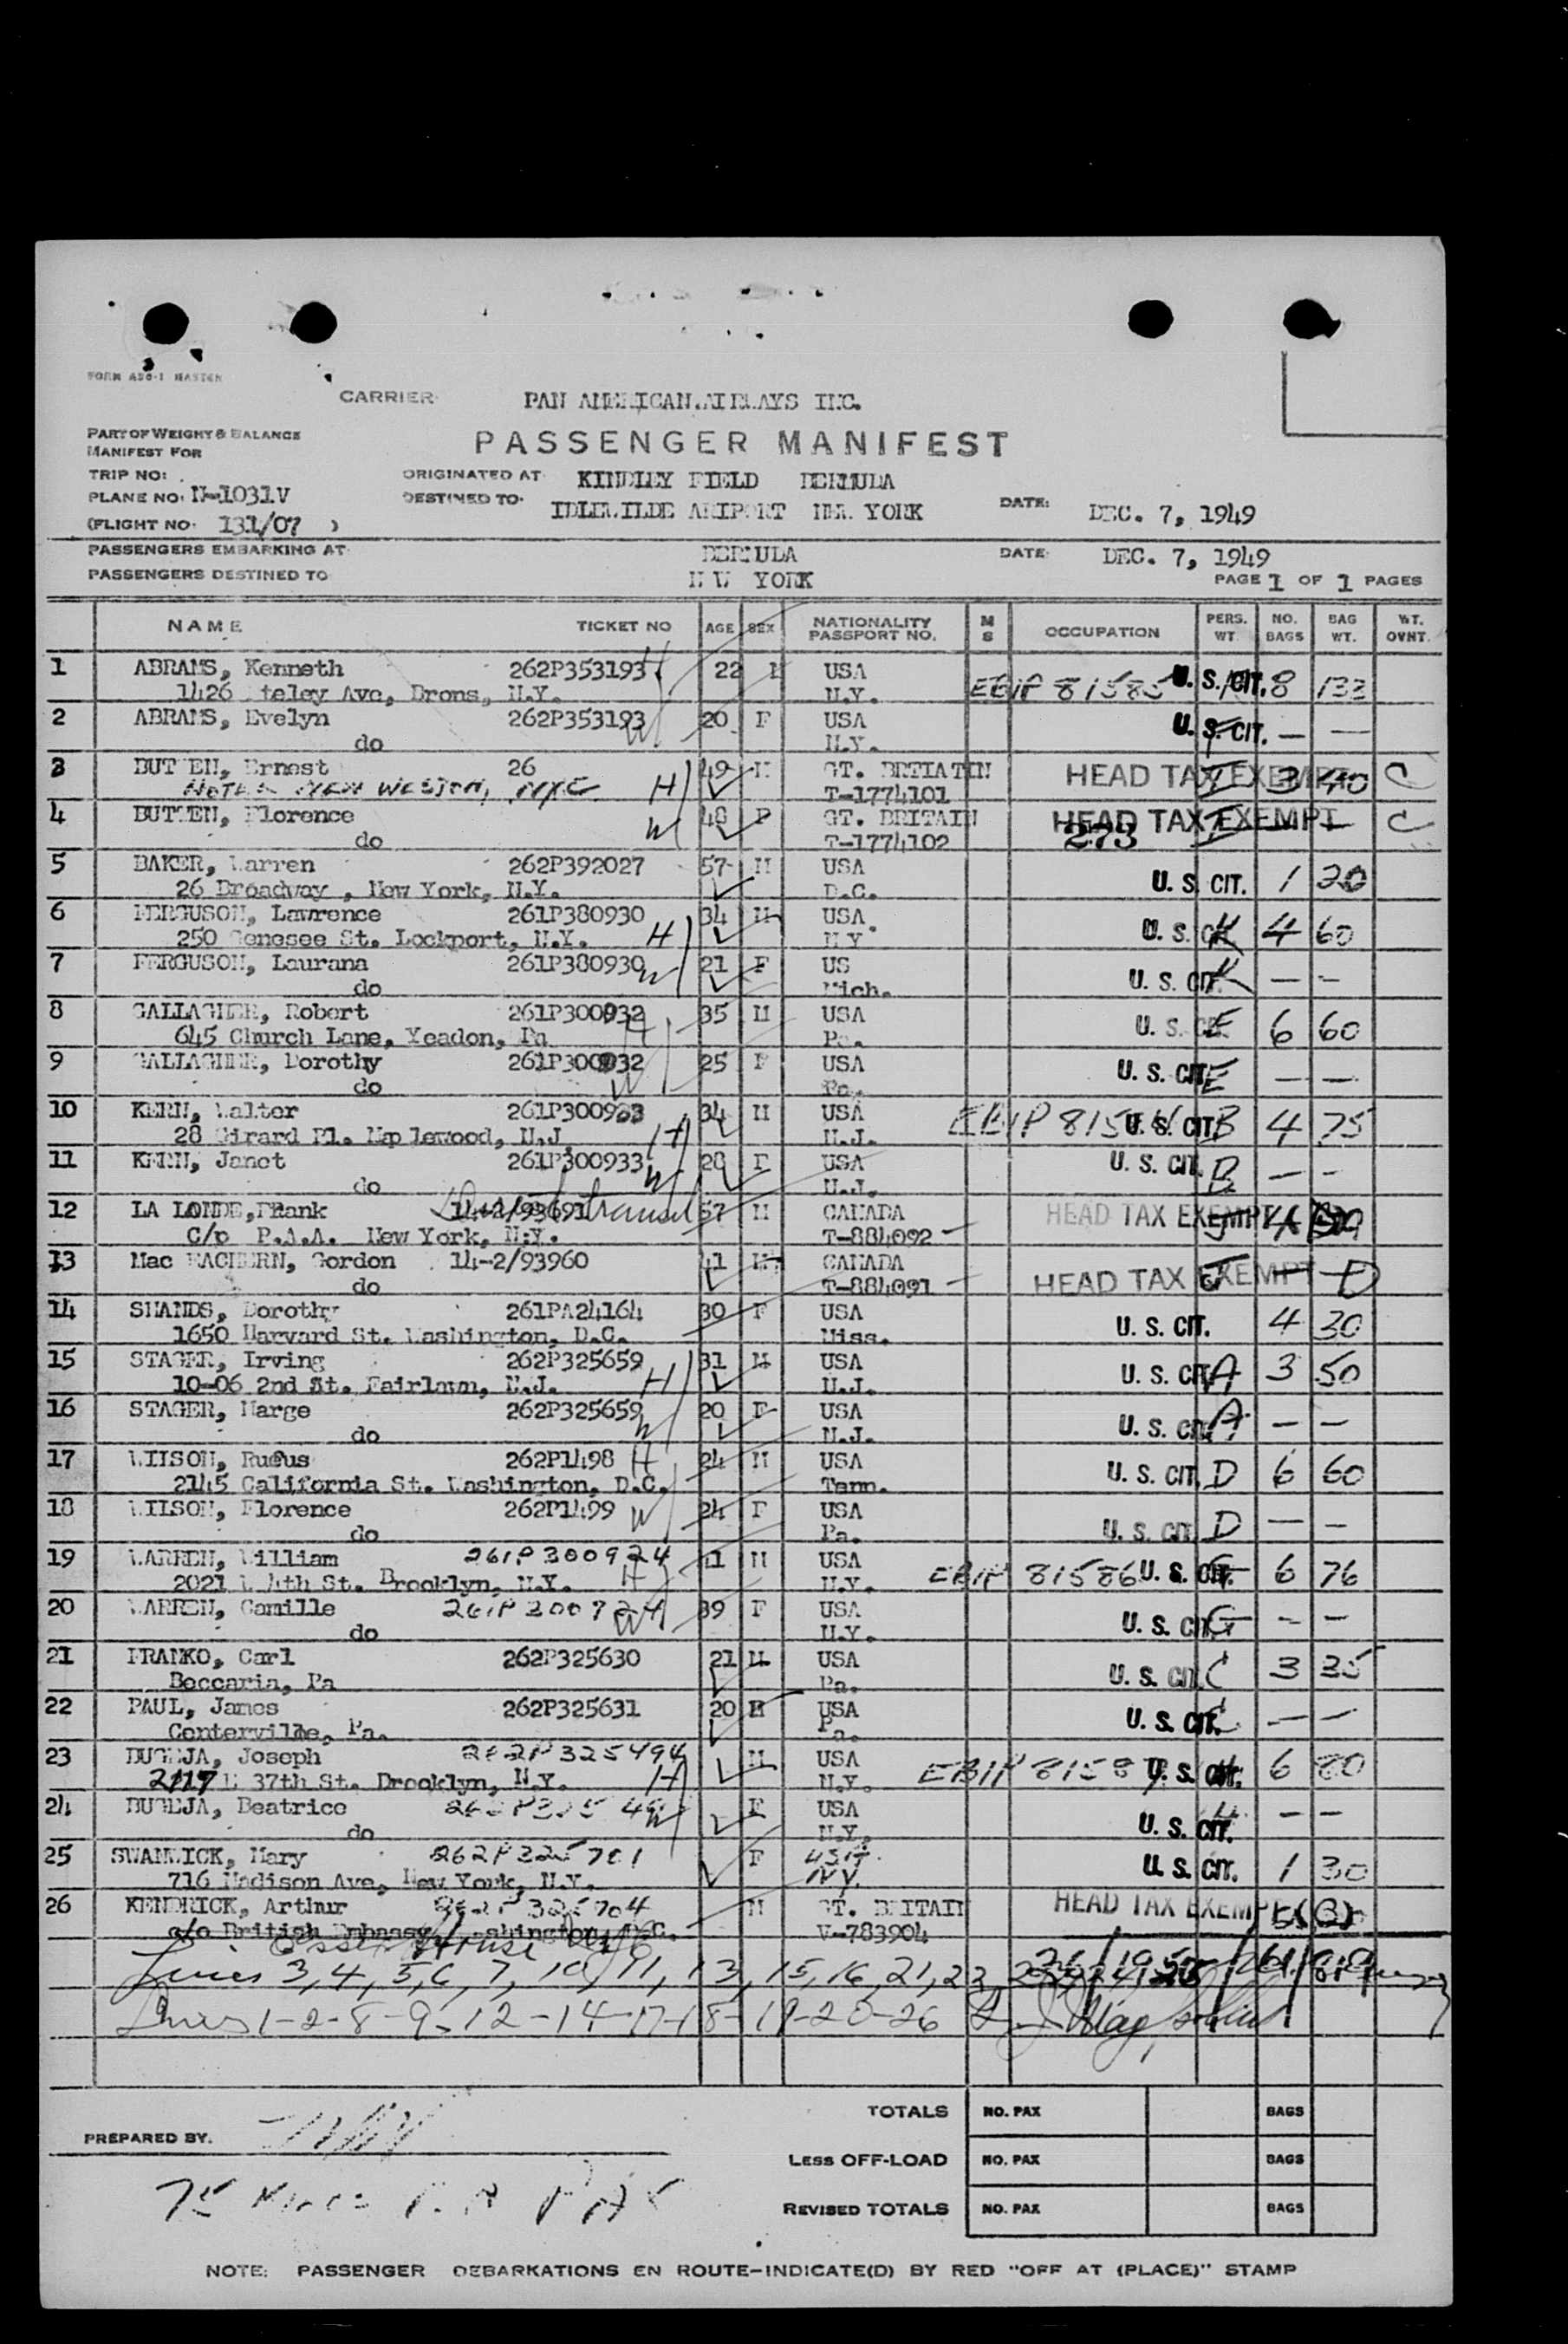 FORM
CARRIER PAN AMERICAN.AIRWAYS INC.
PART OF WEIGHT & BALANCE
MANIFEST FOR
PASSENGER MANIFEST
TRIP NO:
ORIGINATED AT KINDLEY FIELD BERMUDA
PLANE NO: N-1031V
DESTINED TO IDLEWILDE ARIPORT NEW YORK DATE: DEC. 7, 1949
(FLIGHT NO. 131/07 )
PASSENGERS EMBARKING AT BERMUDA DATE DEC. 7, 1949
PASSENGERS DESTINED TO NEW YORK PAGE 1 OF 1 PAGES
NAME TICKET NO AGE SEX NATIONALITY PASSPORT NO. M S OCCUPATION PERS. WT. NO. BAGS BAG WT. WT. OVNT.
1 ABRAMS, Kenneth 262P353193 H 22 M USA U. S. CIT. 8 133
1426 Ave, N.Y. N.Y. EBIP 81585
2 ABRAMS, Evelyn 262P353193 W 20 F USA U. S. CIT. — —
do N.Y.
3 Ernest 26 49 M GT. BRTIATIN HEAD TAX EXEMPT 3 40 C
HOTEL NEW WESTON, NYC H T-1774101
4 Florence 48 F GT. BRITAIN HEAD TAX EXEMPT — C
do W T-1774102 273
5 BAKER, Warren 262P392027 57 M USA U. S. CIT. 1 30
26 Broadway , New York, N.Y. D.C.
6 FERGUSON, Lawrence 261P380930 34 M USA U. S. CIT. K 4 60
250 Genesee St. Lockport, N.Y. H N.Y.
7 FERGUSON, Laurana 261P380930 W 21 F US U. S. CIT. K — —
do Mich.
8 GALLAGHER, Robert 261P300932 H 35 M USA U. S. CIT. E 6 60
645 Church Lane, Yeadon, Pa Pa.
9 GALLAGHER, Dorothy 261P300932 W 25 F USA U. S. CIT. E — —
do Pa.
10 KERN, Walter 261P300933 34 M USA EBIP U. S. CIT. B 4 75
28 Girard Pl. Maplewood, N.J. H N.J.
11 KERN, Janet 261P300933 W 28 F USA U. S. CIT. B — —
do N.J.
12 LA LONDE,Frank 14-2/93691 57 M CANADA HEAD TAX EXEMPT
C/o P.A.A. New York, N.Y. T-884092
13 Mac EACHERN, Gordon 14-2/93960 41 M CANADA HEAD TAX EXEMPT
do T-884091
14 SHANDS, Dorothy 261PA24164 30 F USA U. S. CIT. 4 30
1650 Harvard St. Washington, D.C. Miss.
15 STAGER, Irving 262P325659 31 M USA U. S. CIT. A 3 50
10-06 2nd St. Fairlawn, N.J. H N.J.
16 STAGER, Marge 262P325659 W 20 F USA U. S. CIT. A — —
do N.J.
17 WIISON, Rufus 262P1498 H 24 M USA U. S. CIT. D 6 60
2145 California St. Washington, D.C. Tenn.
18 WILSON, Florence 262P1499 W 24 F USA U. S. CIT. D — —
do Pa.
19 WARREN, William 261P300924 H 41 M USA EBIP 81586 U. S. CIT. G 6 76
2021 4th St. Brooklyn, N.Y. N.Y.
20 WARREN, Camille 261P300924 W 39 F USA U. S. CIT. G — —
do N.Y.
21 FRANKO, Carl 262P325630 21 M USA U. S. CIT. C 3 35
Beccaria, Pa Pa.
22 PAUL, James 262P325631 20 M USA U. S. CIT. C — —
Centerville, Pa. Pa.
23 Joseph 262P325494 M USA EBIP U. S. CIT. H 6 80
2117 E 37th St. Brooklyn, N.Y. H N.Y.
24 Beatrice W F USA U. S. CIT. H — —
do N.Y.
25 SWANWICK, Mary 262P325701 F USA U. S. CIT. 1 30
716 Madison Ave, New York, N.Y. NY.
26 KENDRICK, Arthur 262P325704 M GT. BRITAIN HEAD TAX EXEMPT
c/o British Embassy, Washington, D.C. V-783904
Essex House NYC
Lines 3, 4, 5, 6, 7, 10, 11, 13, 15, 16, 21, 22,
Lines 1-2-8-9-12-14-17-18-19-20-26
TOTALS NO. PAX BAGS
PREPARED BY.
LESS OFF-LOAD NO. PAX BAGS
REVISED TOTALS NO. PAX BAGS
NOTE: PASSENGER DEBARKATIONS EN ROUTE-INDICATE(D) BY RED "OFF AT (PLACE)" STAMP